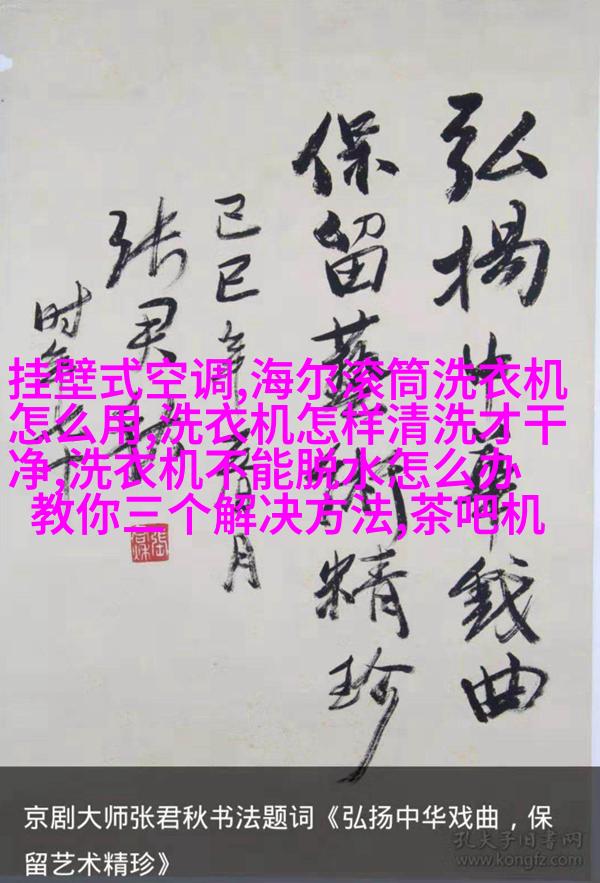 弘揚中華戲曲
保留藝術精珍
己巳年月
张君秋
时年七十
挂壁式空调,海尔滚筒洗衣机
怎么用,洗衣机怎样清洗才干
净,洗衣机不能脱水怎么办
教你三个解决方法,茶吧机
京剧大师张君秋书法题词《弘扬中华戏曲，保
留艺术精珍》
孔夫子旧书网
www.kongfz.com